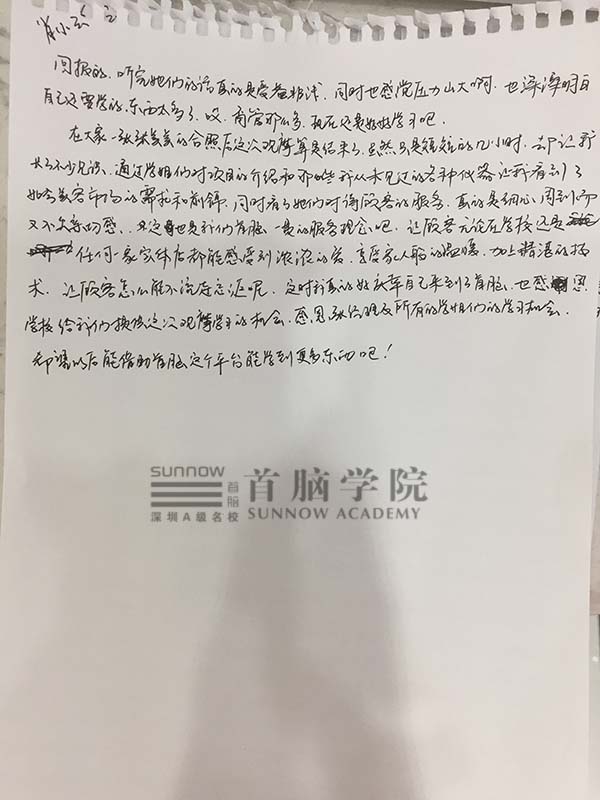 肖小云 2
回报的。听完她们的话真的是受益非浅。同时也感觉压力山大啊。也深深明白
自己还要学的东西太多了。哎,甭管那么多,现在还是好好学习吧。
在大家一张张美美的合照后这次观摩算是结束了。虽然只是短短的几小时,却让我
长了不少见识。通过学姐们对项目的介绍和那些我从未见过的各种仪器让我看到了
如今美容市场的需求和前锋。同时看了她们对待顾客的服务,真的是细心、周到而
又不失亲切感。这也是我们首脑一贯的服务理念吧。让顾客无论在学校还是
任何一家实体店都能感受到浓浓的爱,享受家人般的温暖,加上精湛的技
术,让顾客怎么能不流连忘返呢。这时我真的好庆幸自己来到了首脑。也感恩
学校给我们提供这次观摩学习的机会,感恩张经理及所有的学姐们的学习机会。
希望以后能借助首脑这个平台能学到更多东西吧!
SUNNOW 首脑
深圳A级名校
首脑学院
SUNNOW ACADEMY